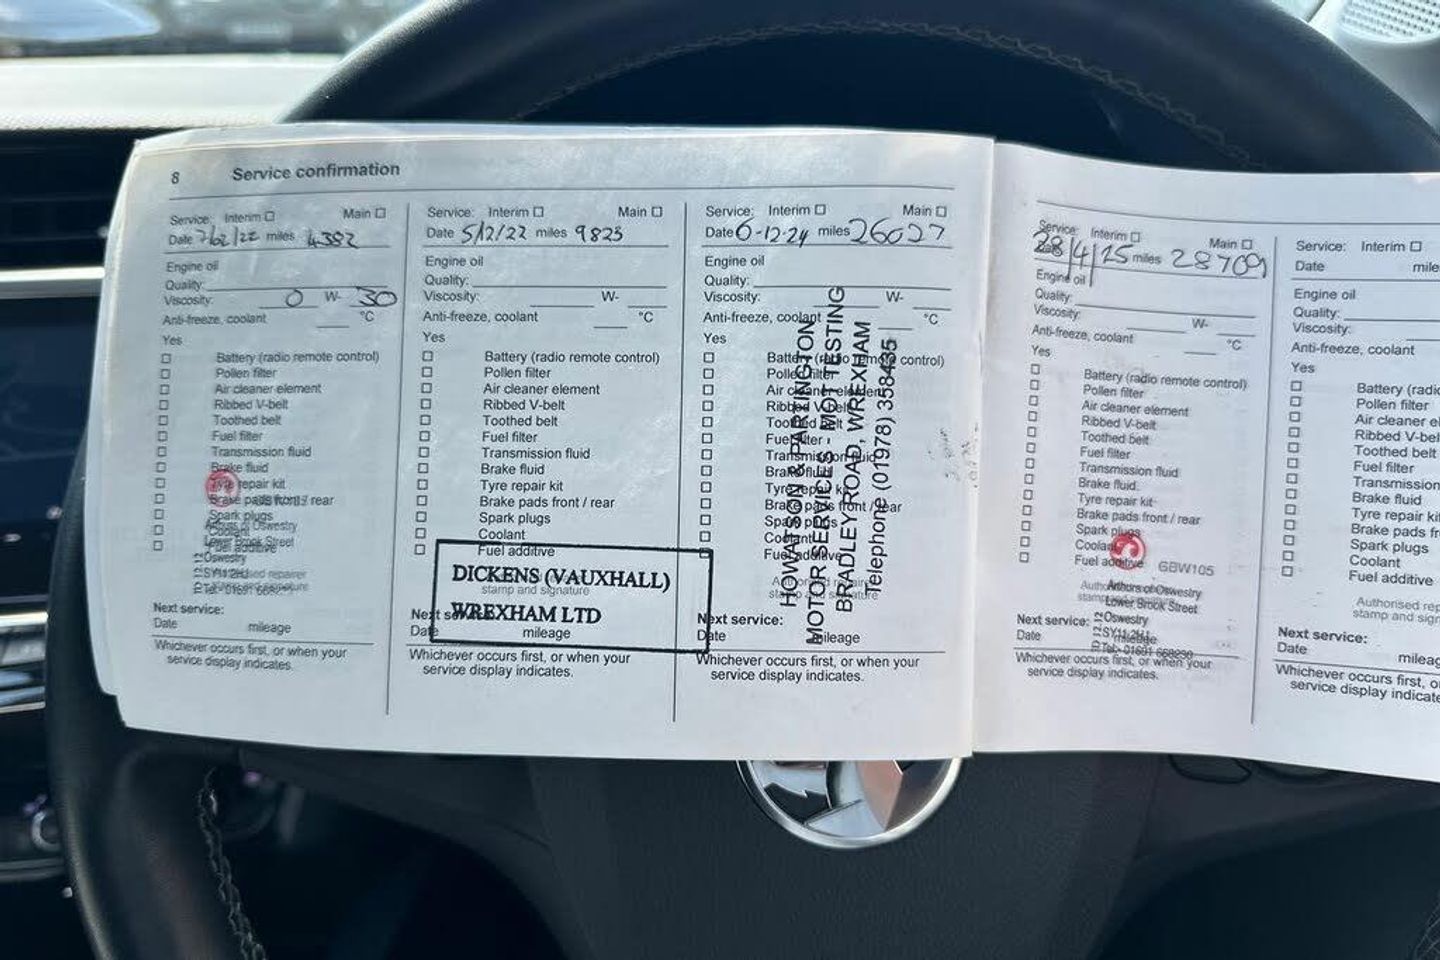 8 Service confirmation
Service: Interim Main
Date 7/02/22 miles 4392
Engine oil
Quality:
Viscosity: 0 W- 30
Anti-freeze, coolant °C
Yes
Battery (radio remote control)
Pollen filter
Air cleaner element
Ribbed V-belt
Toothed belt
Fuel filter
Transmission fluid
Brake fluid
Tyre repair kit
Brake pads front / rear
Spark plugs
Coolant
Fuel additive
Arthurs of Oswestry
Lower Brook Street
Oswestry
SY11 2HJ
Next service:
Date mileage
Whichever occurs first, or when your
service display indicates.
Service: Interim Main
Date 5/12/22 miles 9825
Engine oil
Quality:
Viscosity: W-
Anti-freeze, coolant °C
Yes
Battery (radio remote control)
Pollen filter
Air cleaner element
Ribbed V-belt
Toothed belt
Fuel filter
Transmission fluid
Brake fluid
Tyre repair kit
Brake pads front / rear
Spark plugs
Coolant
Fuel additive
stamp and signature
DICKENS (VAUXHALL)
WREXHAM LTD
Next service:
Date mileage
Whichever occurs first, or when your
service display indicates.
Service: Interim Main
Date 6-12-24 miles 26027
Engine oil
Quality:
Viscosity: W-
Anti-freeze, coolant °C
Yes
Battery (radio remote control)
Pollen filter
Air cleaner element
Ribbed V-belt
Toothed belt
Fuel filter
Transmission fluid
Brake fluid
Tyre repair kit
Brake pads front / rear
Spark plugs
Coolant
Fuel additive
HOWATSON & PARTINGTON
MOTOR SERVICES - MOT TESTING
BRADLEY ROAD, WREXHAM
Telephone (01978) 358435
Next service:
Date mileage
Whichever occurs first, or when your
service display indicates.
Service: Interim Main
Date 28/4/25 miles 28709
Engine oil
Quality:
Viscosity: W-
Anti-freeze, coolant °C
Yes
Battery (radio remote control)
Pollen filter
Air cleaner element
Ribbed V-belt
Toothed belt
Fuel filter
Transmission fluid
Brake fluid
Tyre repair kit
Brake pads front / rear
Spark plugs
Coolant
Fuel additive
GBW105
Arthurs of Oswestry
Lower Brook Street
Oswestry
SY11 2HJ
Next service:
Date mileage
Whichever occurs first, or when your
service display indicates.
Service: Interim
Date mile
Engine oil
Quality:
Viscosity:
Anti-freeze, coolant
Yes
Battery (radio
Pollen filter
Air cleaner el
Ribbed V-bel
Toothed belt
Fuel filter
Transmission
Brake fluid
Tyre repair ki
Brake pads fr
Spark plugs
Coolant
Fuel additive
Authorised rep
stamp and sign
Next service:
Date mileag
Whichever occurs first, o
service display indicate